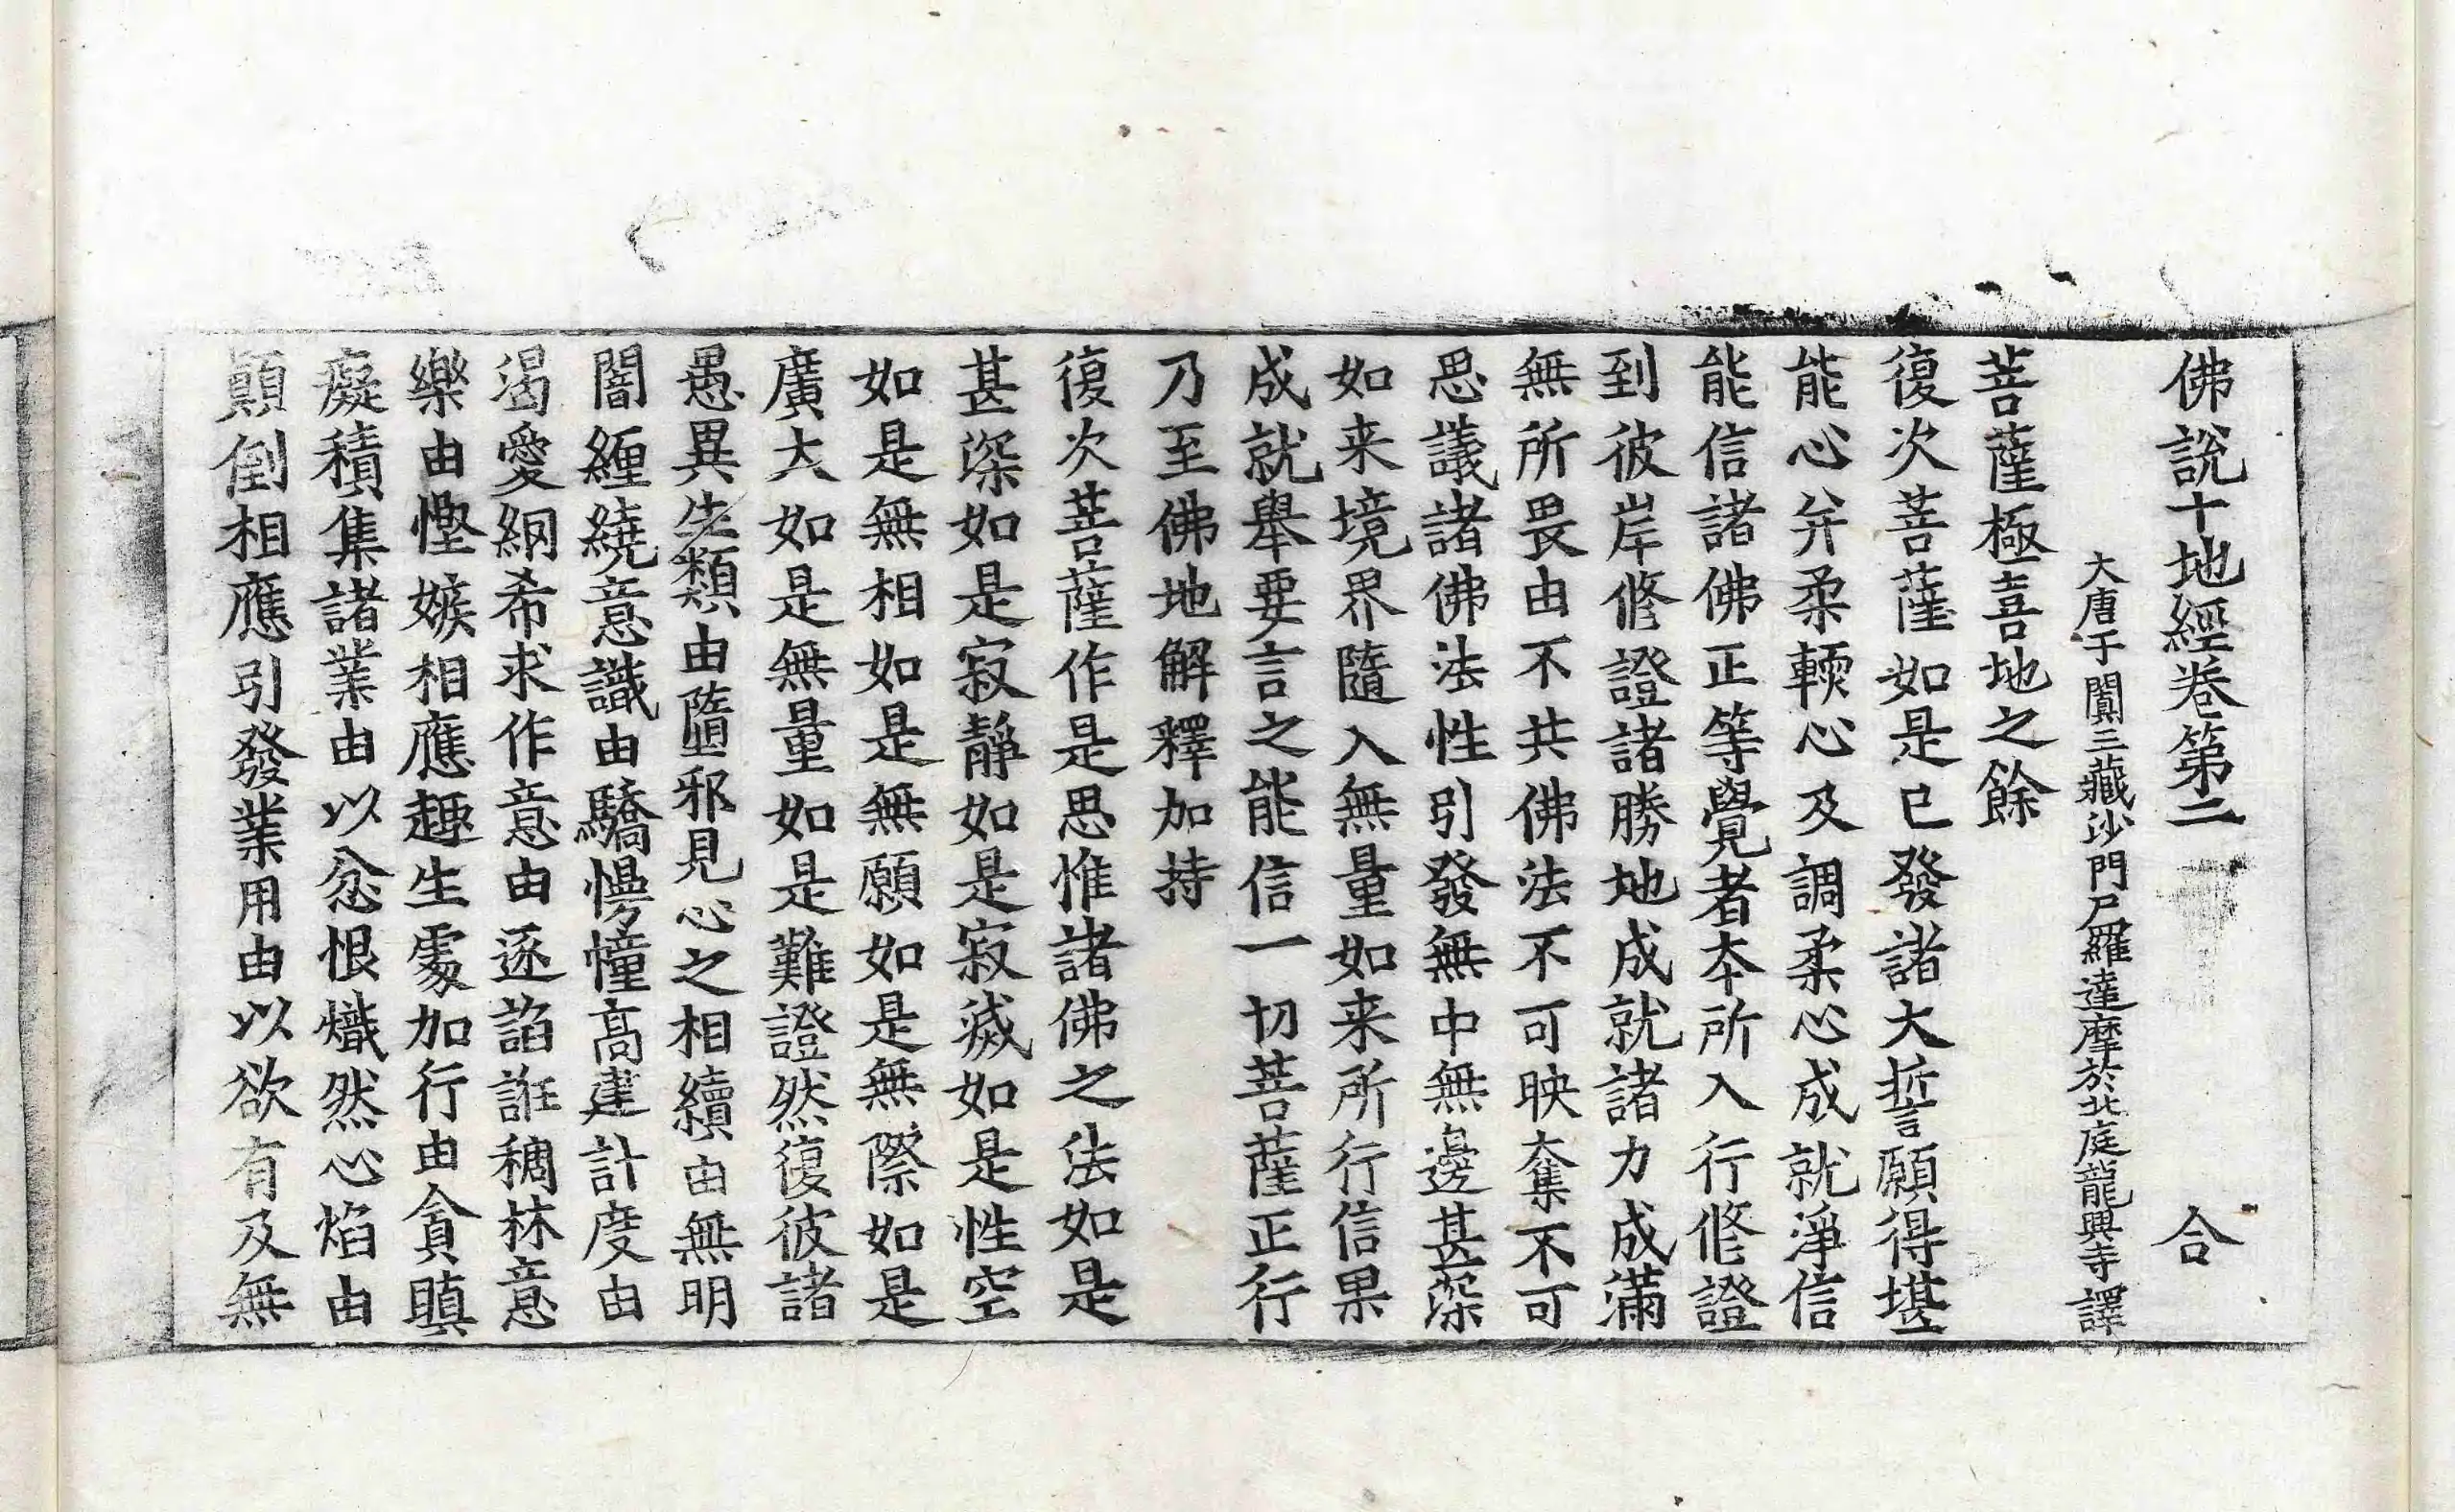 佛說十地經卷第二 合
大唐于闐三藏沙門尸羅達摩於北庭龍興寺譯
菩薩極喜地之餘
復次菩薩如是已發諸大誓願得堪
能心弁柔輭心及調柔心成就淨信
能信諸佛正等覺者本所入行修證
到彼岸修證諸勝地成就諸力成滿
無所畏由不共佛法不可映奪不可
思議諸佛法性引發無中無邊甚深
如来境界隨入無量如来所行信果
成就舉要言之能信一切菩薩正行
乃至佛地解釋加持
復次菩薩作是思惟諸佛之法如是
甚深如是寂靜如是寂滅如是性空
如是無相如是無願如是無際如是
廣大如是無量如是難證然復彼諸
愚異生類由墮邪見心之相續由無明
闇纏繞意識由驕慢幢高建計度由
渴愛網希求作意由逐諂誑稠林意
樂由慳嫉相應趣生處加行由貪瞋
癡積集諸業由以忿恨熾然心焰由
顛倒相應引發業用由以欲有及無